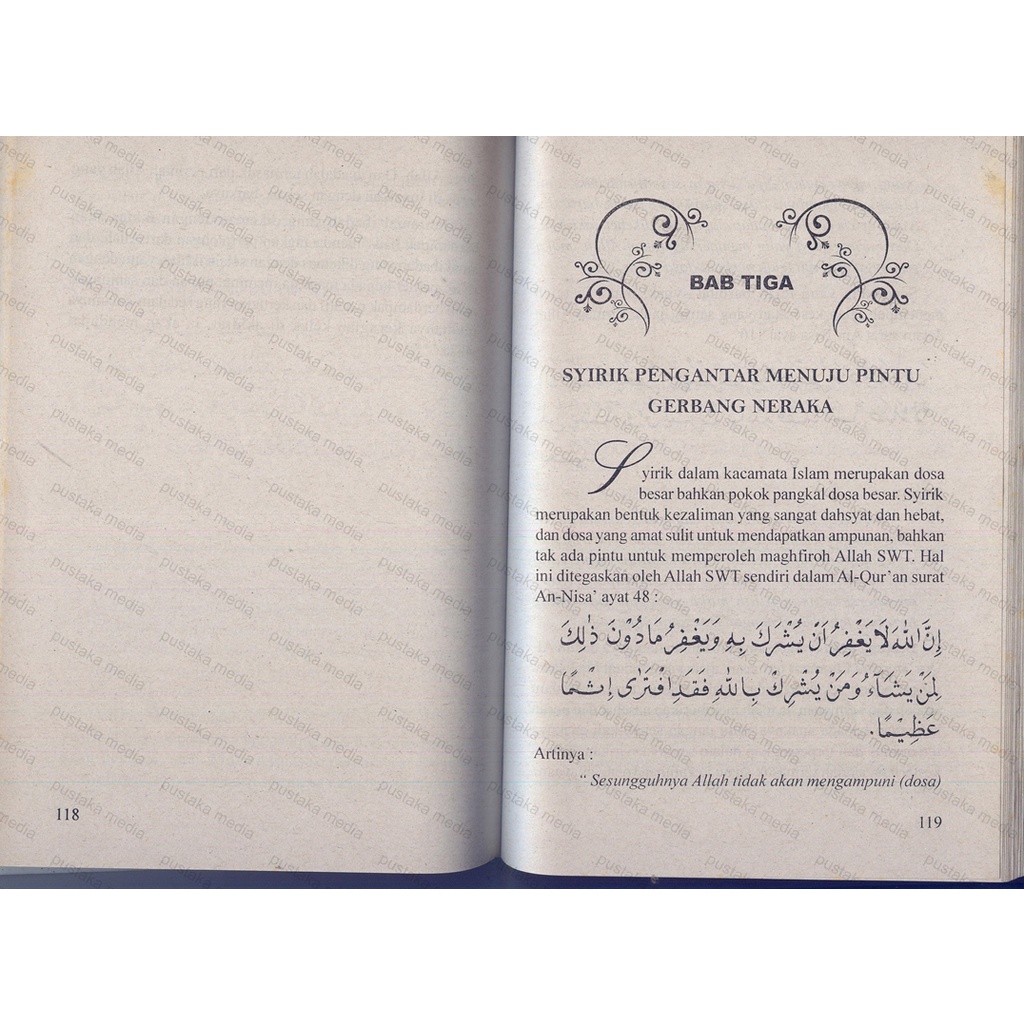 118
BAB TIGA
SYIRIK PENGANTAR MENUJU PINTU
GERBANG NERAKA
Syirik dalam kacamata Islam merupakan dosa
besar bahkan pokok pangkal dosa besar. Syirik
merupakan bentuk kezaliman yang sangat dahsyat dan hebat,
dan dosa yang amat sulit untuk mendapatkan ampunan, bahkan
tak ada pintu untuk memperoleh maghfiroh Allah SWT. Hal
ini ditegaskan oleh Allah SWT sendiri dalam Al-Qur'an surat
An-Nisa' ayat 48 :
اِنَّ اللّٰهَ لَا يَغْفِرُ اَنْ يُشْرَكَ بِهِ وَيَغْفِرُ مَا دُوْنَ ذٰلِكَ
لِمَنْ يَشَآءُ وَمَنْ يُشْرِكْ بِاللّٰهِ فَقَدِ افْتَرٰى اِثْمًا
عَظِيْمًا.
Artinya :
“ Sesungguhnya Allah tidak akan mengampuni (dosa)
119
pustaka media